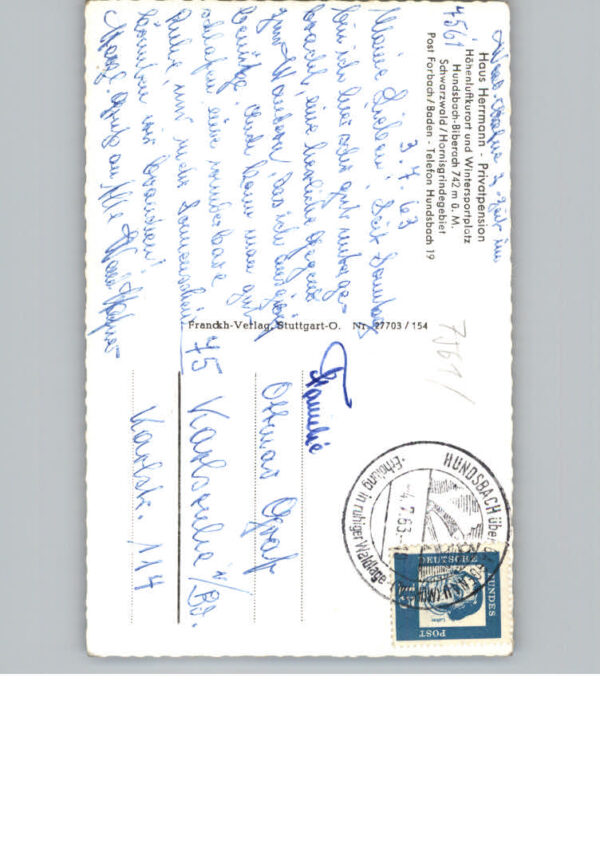 Haus Herrmann - Privatpension
Höhenluftkurort und Wintersportplatz
7561
Hundsbach-Biberach 742 m ü. M.
Schwarzwald/Hornisgrindegebiet
Post Forbach/Baden - Telefon Hundsbach 19
3.7.63
Meine Lieben! Seit Sonntag
bin ich hier sehr gut unterge-
bracht, eine herrliche Gegend
zum Wandern, das ich ausgiebig
benütze. Auch kann man gut
schlafen, eine wunderbare
Ruhe, nur mehr Sonnenschein
könnten wir brauchen!
Herzl. Grüße
Franckh-Verlag, Stuttgart-O. Nr. 27703 / 154
7561
Familie
Ottmar Graf
75 Karlsruhe i/Bd.
Karlstr. 114
HUNDSBACH über
Erholung in ruhiger Waldlage
4.7.63
DEUTSCHE
BUNDES
POST
Luther